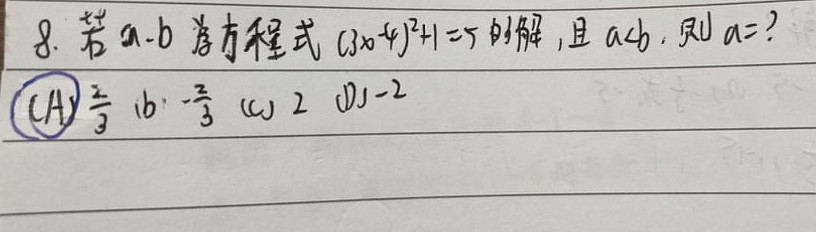 8. 若 a、b 為方程式 (3x-4)²+1=5 的解,且 a<b,則 a=?
(A) 2/3 (b) -2/3 (C) 2 (D) -2